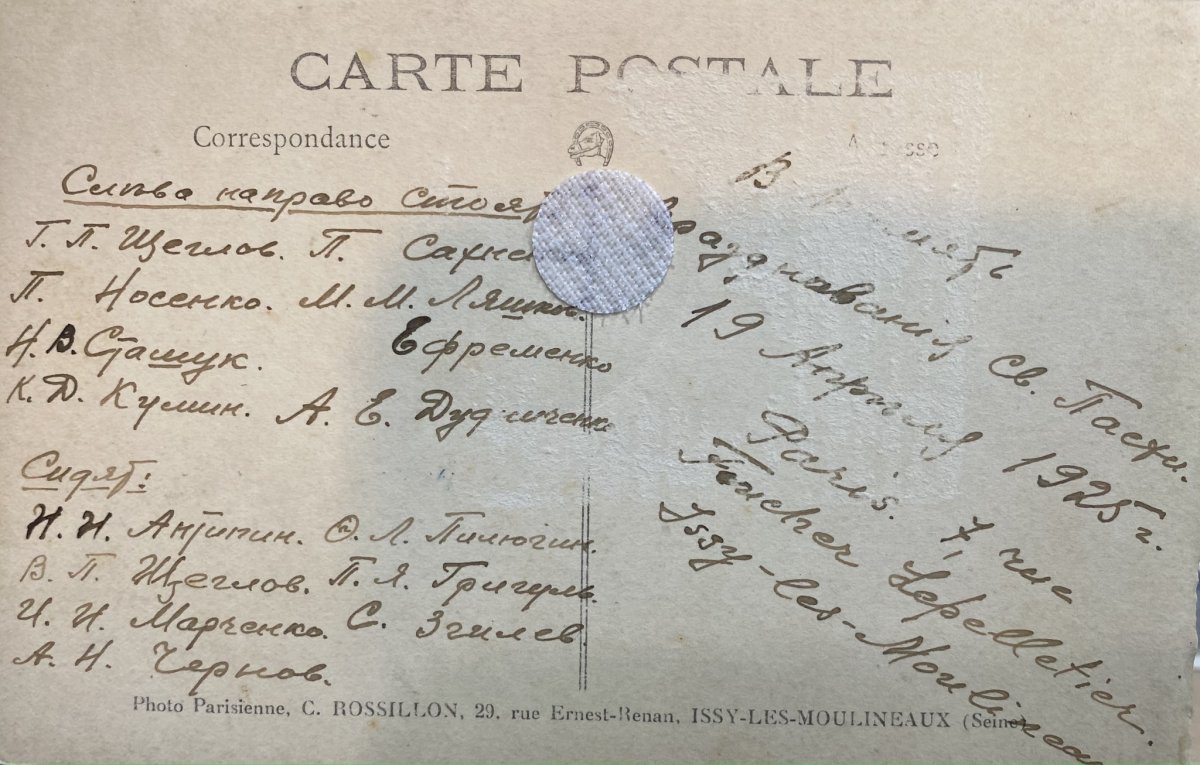 CARTE POSTALE
Correspondance
Слѣва направо стоят
Г. П. Щеглов. П. Сахне
П. Носенко. М. М. Ляшков.
Н. В. Сташук. Ефременко
К. Д. Кумин. А. Е. Дудниченко
Сидят:
Н. Н. Антипин. Ѳ. Л. Пилюгин.
В. П. Щеглов. П. Я. Григуль.
И. И. Марченко. С. Згилев
А. Н. Чернов.
В
празднованія Св. Пасхи.
19 Апрѣля 1925 г.
Paris. 7, rue
Foucher Lepelletier.
Issy-les-Moulineau
Photo Parisienne, C. ROSSILLON, 29, rue Ernest-Renan, ISSY-LES-MOULINEAUX (Seine)